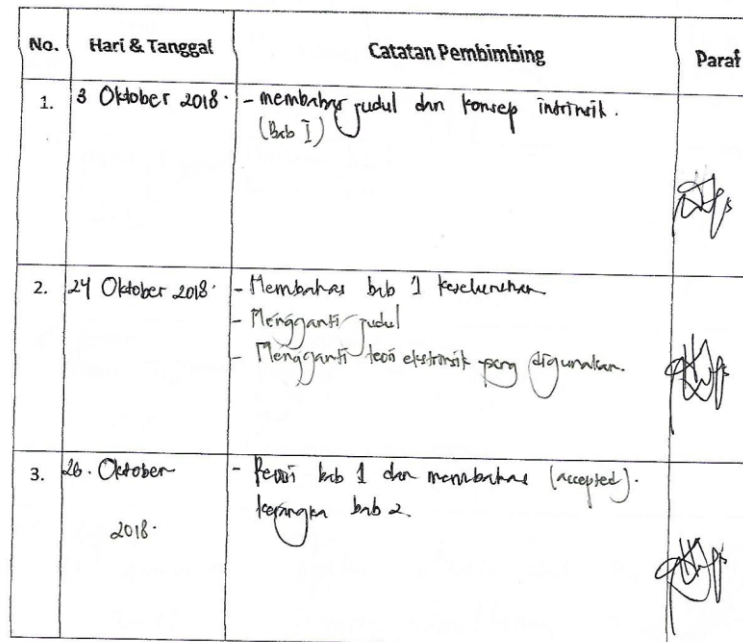 No. Hari & Tanggal Catatan Pembimbing Paraf
1. 3 Oktober 2018. - membahas judul dan konsep intrinsik.
(Bab I)
2. 24 Oktober 2018. - Membahas bab 1 keseluruhan
- Mengganti judul
- Mengganti teori ekstrinsik yang digunakan.
3. 26. Oktober - Revisi bab 1 dan membahas (accepted).
2018. kerangka bab 2.